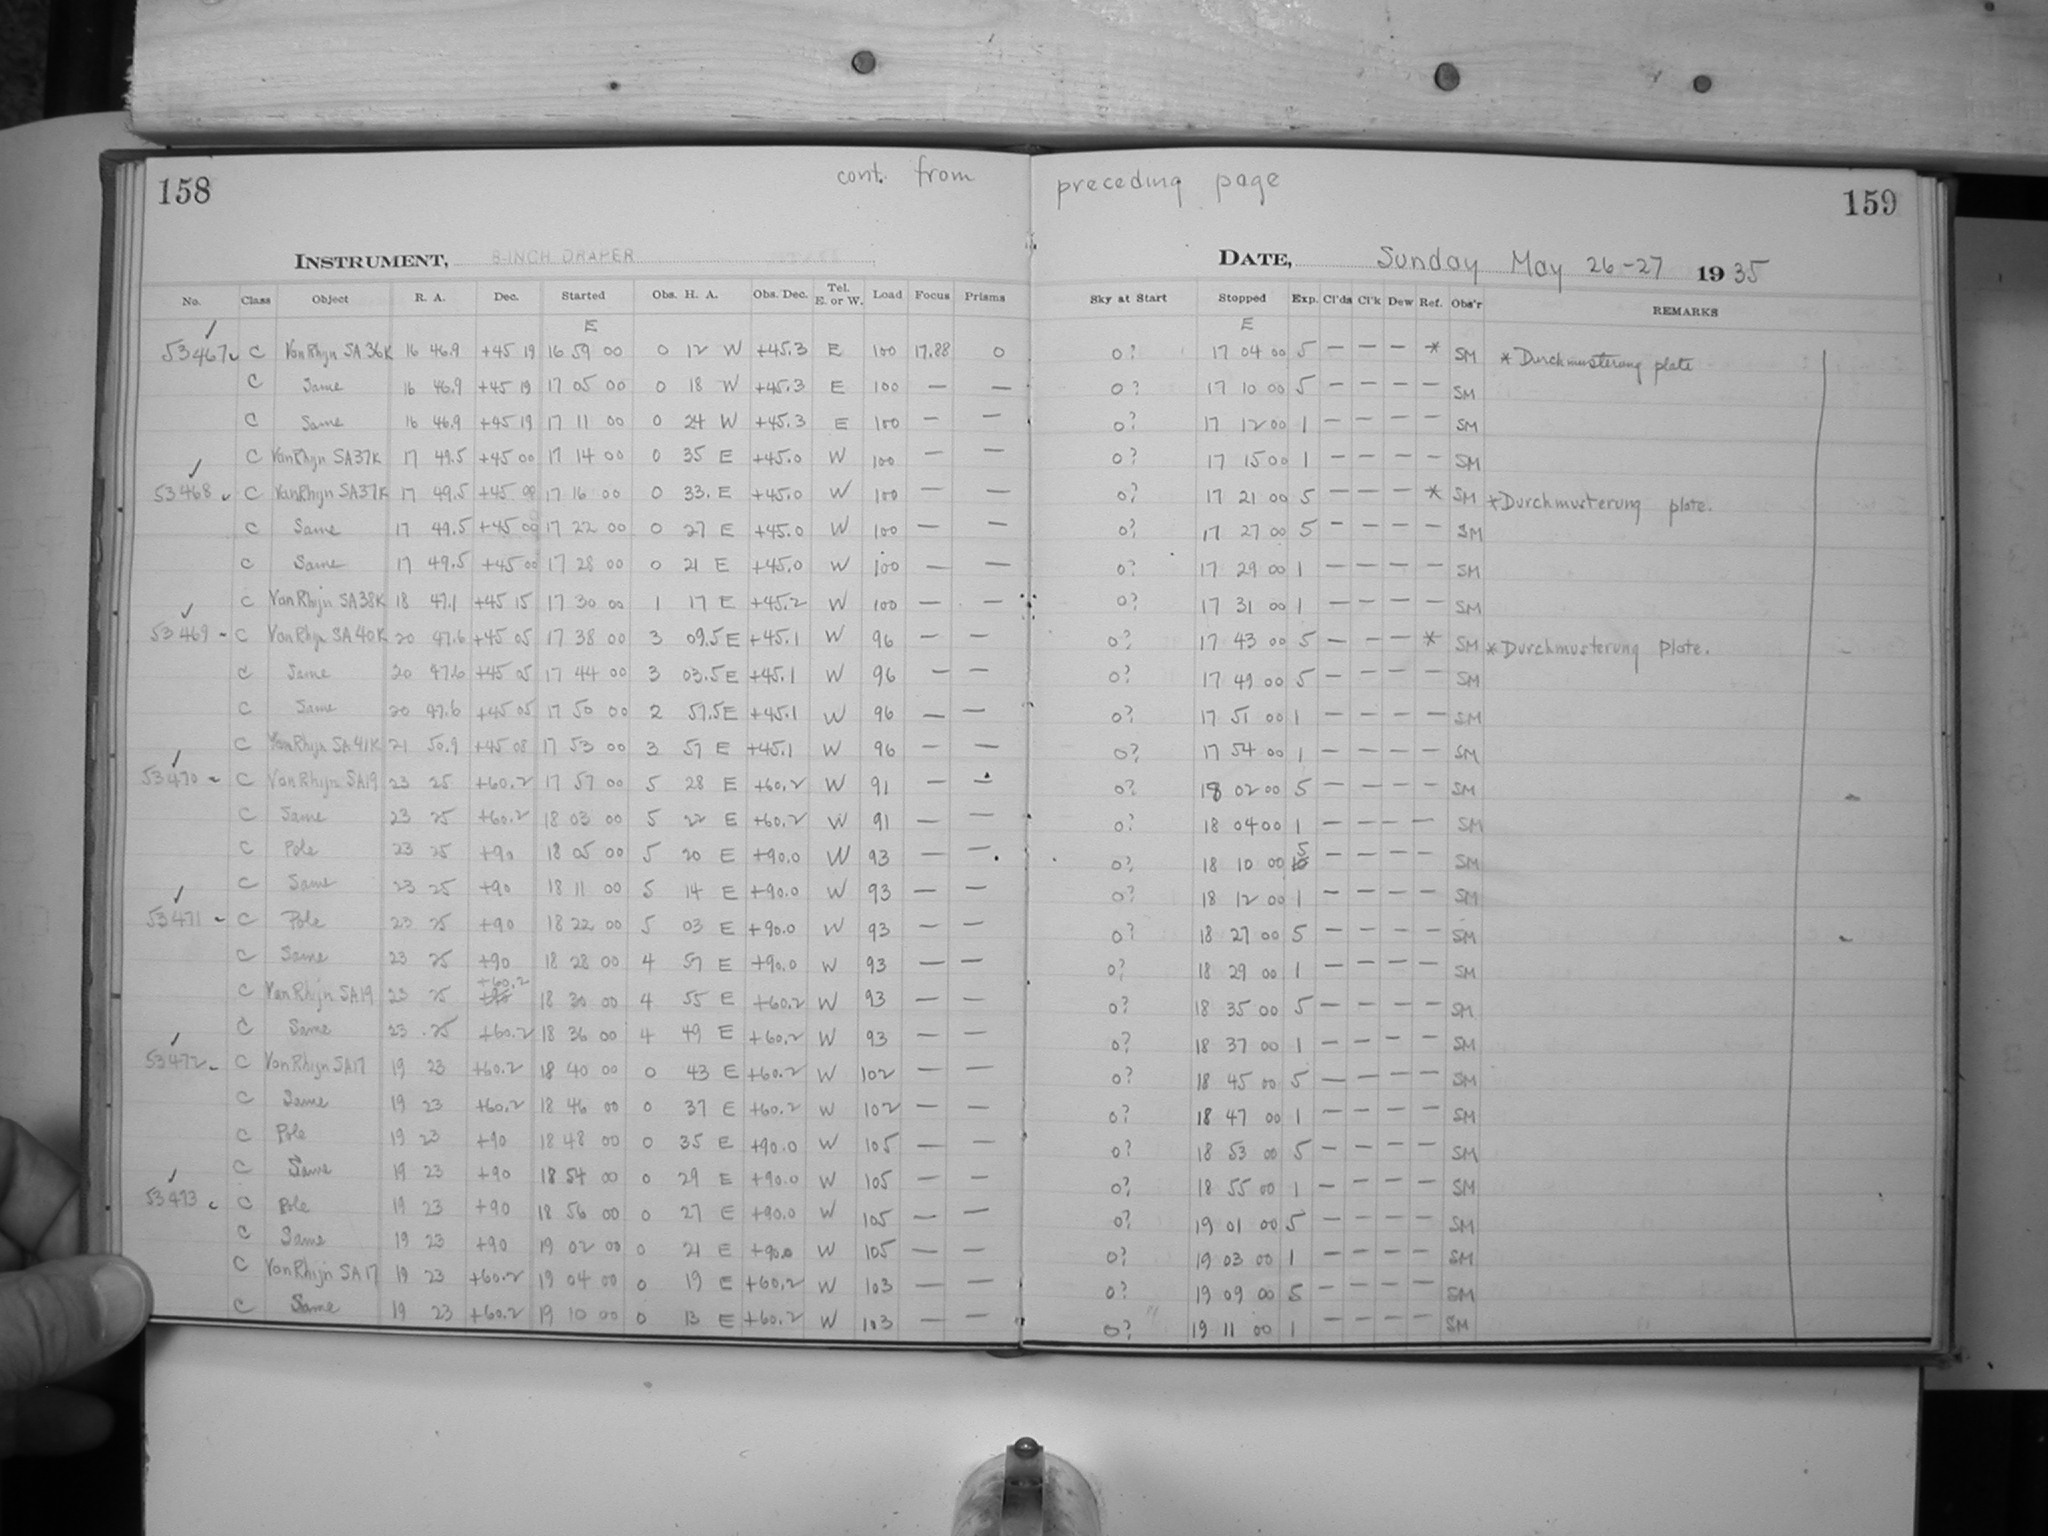 158 cont. from preceding page 159
INSTRUMENT, 8-INCH DRAPER DATE, Sunday May 26-27 1935
No. Class Object R. A. Dec. Started Obs. H. A. Obs. Dec. Tel. E. or W. Load Focus Prisms Sky at Start Stopped Exp. Cl'ds Cl'k Dew Ref. Obs'r REMARKS
E E
53467 C Van Rhijn SA 36K 16 46.9 +45 19 16 59 00 0 12 W +45.3 E 100 17.88 0 0? 17 04 00 5 — — — * SM * Durchmusterung plate
C Same 16 46.9 +45 19 17 05 00 0 18 W +45.3 E 100 — — 0? 17 10 00 5 — — — — SM
C Same 16 46.9 +45 19 17 11 00 0 24 W +45.3 E 100 — — 0? 17 12 00 1 — — — — SM
C Van Rhijn SA37K 17 49.5 +45 00 17 14 00 0 35 E +45.0 W 100 — — 0? 17 15 00 1 — — — — SM
53468 C Van Rhijn SA37K 17 49.5 +45 00 17 16 00 0 33. E +45.0 W 100 — — 0? 17 21 00 5 — — — * SM * Durchmusterung plate.
C Same 17 49.5 +45 00 17 22 00 0 27 E +45.0 W 100 — — 0? 17 27 00 5 — — — — SM
C Same 17 49.5 +45 00 17 28 00 0 21 E +45.0 W 100 — — 0? 17 29 00 1 — — — — SM
C Van Rhijn SA38K 18 47.1 +45 15 17 30 00 1 17 E +45.2 W 100 — — 0? 17 31 00 1 — — — — SM
53469 C Van Rhijn SA40K 20 47.6 +45 05 17 38 00 3 09.5 E +45.1 W 96 — — 0? 17 43 00 5 — — — * SM * Durchmusterung Plate.
C Same 20 47.6 +45 05 17 44 00 3 03.5 E +45.1 W 96 — — 0? 17 49 00 5 — — — — SM
C Same 20 47.6 +45 05 17 50 00 2 57.5 E +45.1 W 96 — — 0? 17 51 00 1 — — — — SM
C Van Rhijn SA 41K 21 50.9 +45 08 17 53 00 3 57 E +45.1 W 96 — — 0? 17 54 00 1 — — — — SM
53470 C Van Rhijn SA19 23 25 +60.2 17 57 00 5 28 E +60.2 W 91 — — 0? 18 02 00 5 — — — — SM
C Same 23 25 +60.2 18 03 00 5 22 E +60.2 W 91 — — 0? 18 04 00 1 — — — — SM
C Pole 23 25 +90 18 05 00 5 20 E +90.0 W 93 — — 0? 18 10 00 5 — — — — SM
C Same 23 25 +90 18 11 00 5 14 E +90.0 W 93 — — 0? 18 12 00 1 — — — — SM
53471 C Pole 23 25 +90 18 22 00 5 03 E +90.0 W 93 — — 0? 18 27 00 5 — — — — SM
C Same 23 25 +90 18 28 00 4 57 E +90.0 W 93 — — 0? 18 29 00 1 — — — — SM
C Van Rhijn SA19 23 25 +60.2 18 30 00 4 55 E +60.2 W 93 — — 0? 18 35 00 5 — — — — SM
C Same 23 25 +60.2 18 36 00 4 49 E +60.2 W 93 — — 0? 18 37 00 1 — — — — SM
53472 C Van Rhijn SA17 19 23 +60.2 18 40 00 0 43 E +60.2 W 102 — — 0? 18 45 00 5 — — — — SM
C Same 19 23 +60.2 18 46 00 0 37 E +60.2 W 102 — — 0? 18 47 00 1 — — — — SM
C Pole 19 23 +90 18 48 00 0 35 E +90.0 W 105 — — 0? 18 53 00 5 — — — — SM
C Same 19 23 +90 18 54 00 0 29 E +90.0 W 105 — — 0? 18 55 00 1 — — — — SM
53473 C Pole 19 23 +90 18 56 00 0 27 E +90.0 W 105 — — 0? 19 01 00 5 — — — — SM
C Same 19 23 +90 19 02 00 0 21 E +90.0 W 105 — — 0? 19 03 00 1 — — — — SM
C Van Rhijn SA17 19 23 +60.2 19 04 00 0 19 E +60.2 W 103 — — 0? 19 09 00 5 — — — — SM
C Same 19 23 +60.2 19 10 00 0 13 E +60.2 W 103 — — 0? 19 11 00 1 — — — — SM